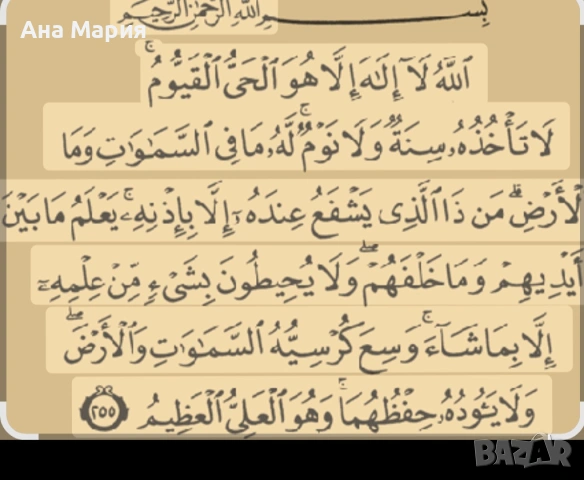 Ана Мария
بِسْمِ اللَّهِ الرَّحْمَٰنِ الرَّحِيمِ
ٱللَّهُ لَآ إِلَٰهَ إِلَّا هُوَ ٱلْحَىُّ ٱلْقَيُّومُ ۚ
لَا تَأْخُذُهُۥ سِنَةٌ وَلَا نَوْمٌ ۚ لَّهُۥ مَا فِى ٱلسَّمَٰوَٰتِ وَمَا
ٱلْأَرْضِ ۗ مَن ذَا ٱلَّذِى يَشْفَعُ عِندَهُۥٓ إِلَّا بِإِذْنِهِۦ ۚ يَعْلَمُ مَا بَيْنَ
أَيْدِيهِمْ وَمَا خَلْفَهُمْ ۖ وَلَا يُحِيطُونَ بِشَىْءٍ مِّنْ عِلْمِهِۦٓ
إِلَّا بِمَا شَآءَ ۚ وَسِعَ كُرْسِيُّهُ ٱلسَّمَٰوَٰتِ وَٱلْأَرْضَ ۖ
وَلَا يَـُٔودُهُۥ حِفْظُهُمَا ۚ وَهُوَ ٱلْعَلِىُّ ٱلْعَظِيمُ ٢٥٥
BAZAR